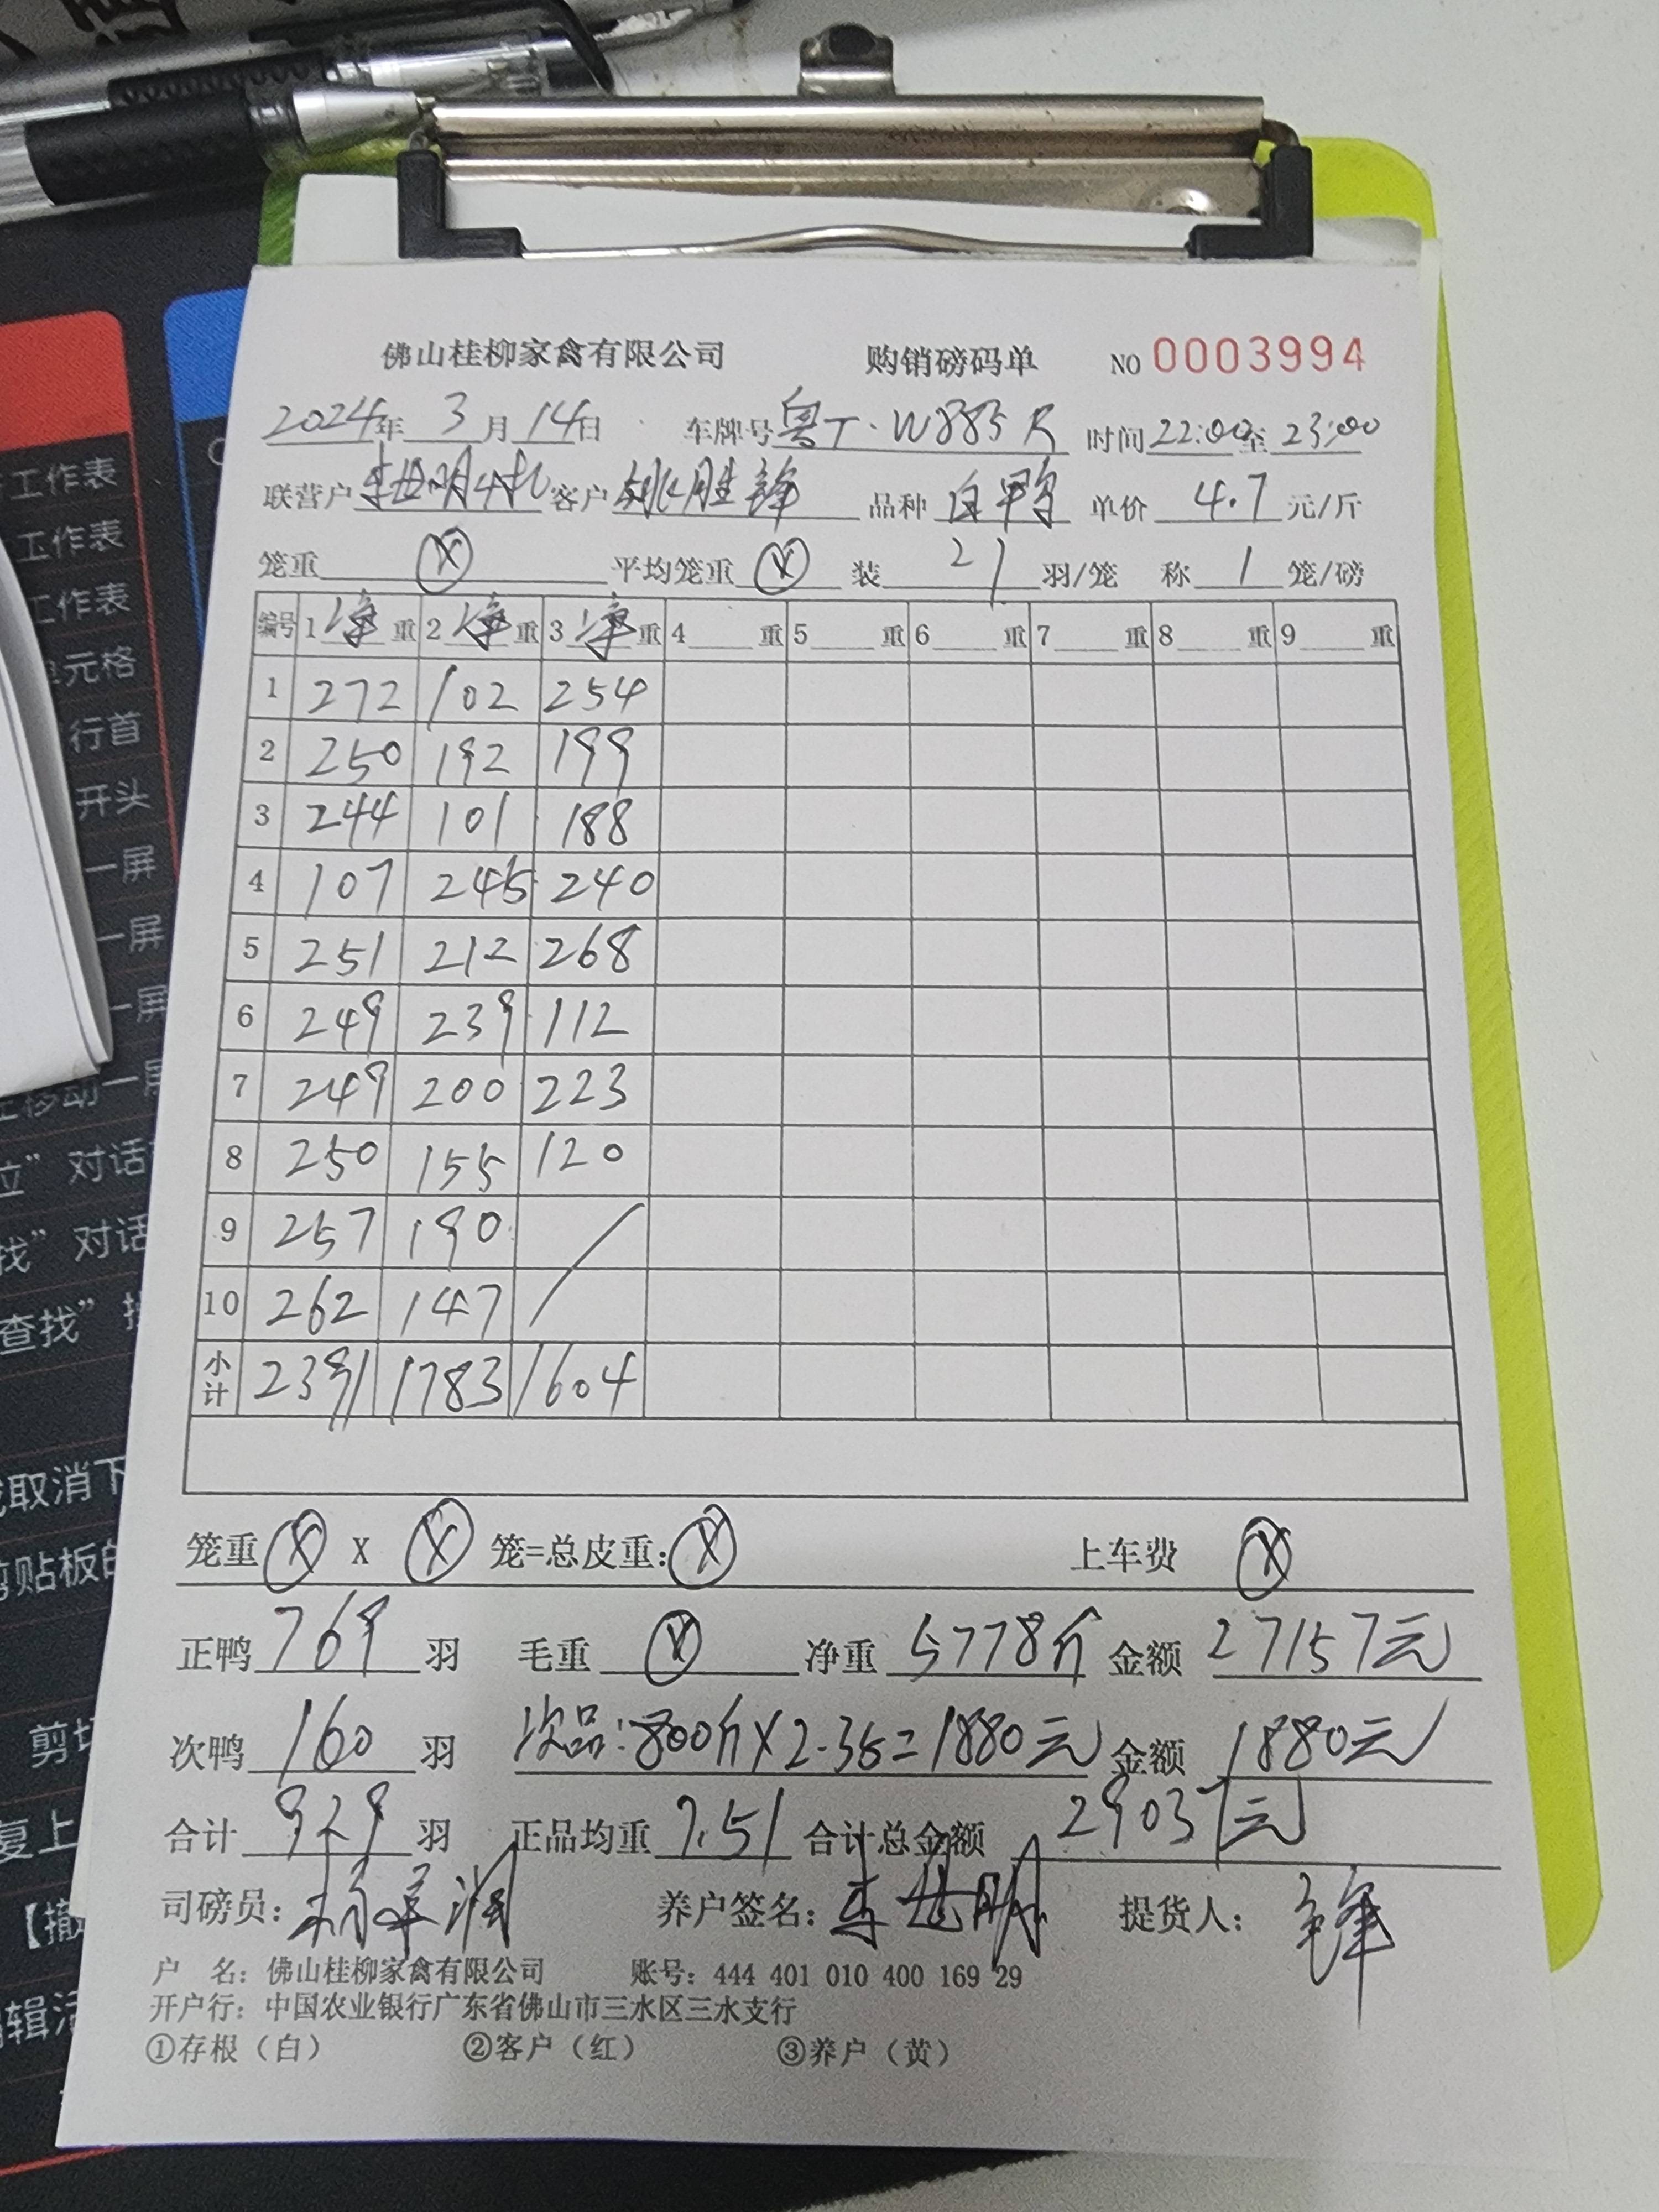 佛山桂柳家禽有限公司 购销磅码单 NO 0003994
2024年 3月 14日 车牌号 粤T·W885R 时间 22:00至 23:00
联营户 李世明4批 客户 姚胜锋 品种 白鸭 单价 4.7 元/斤
笼重 Ⓧ 平均笼重 Ⓧ 装 21 羽/笼 称 1 笼/磅
编号 1净重 2净重 3净重 4 重 5 重 6 重 7 重 8 重 9 重
1 272 102 254
2 250 192 199
3 244 101 188
4 107 245 240
5 251 212 268
6 249 239 112
7 249 200 223
8 250 155 120
9 257 190
10 262 147
小计 2391 1783 1604
笼重 Ⓧ X Ⓧ 笼=总皮重: Ⓧ 上车费 Ⓧ
正鸭 769 羽 毛重 Ⓧ 净重 5778斤 金额 27157元
次鸭 160 羽 次品:800斤X2.35=1880元 金额 1880元
合计 929 羽 正品均重 7.51 合计总金额 29037元
司磅员: 养户签名: 李世明 提货人: 锋
户 名: 佛山桂柳家禽有限公司 账号: 444 401 010 400 169 29
开户行: 中国农业银行广东省佛山市三水区三水支行
①存根（白） ②客户（红） ③养户（黄）
工作表
工作表
工作表
单元格
行首
开头
一屏
一屏
一屏
移动一屏
位”对话
找”对话
查找”
取消下
剪贴板的
剪切
复上
【撤
辑活